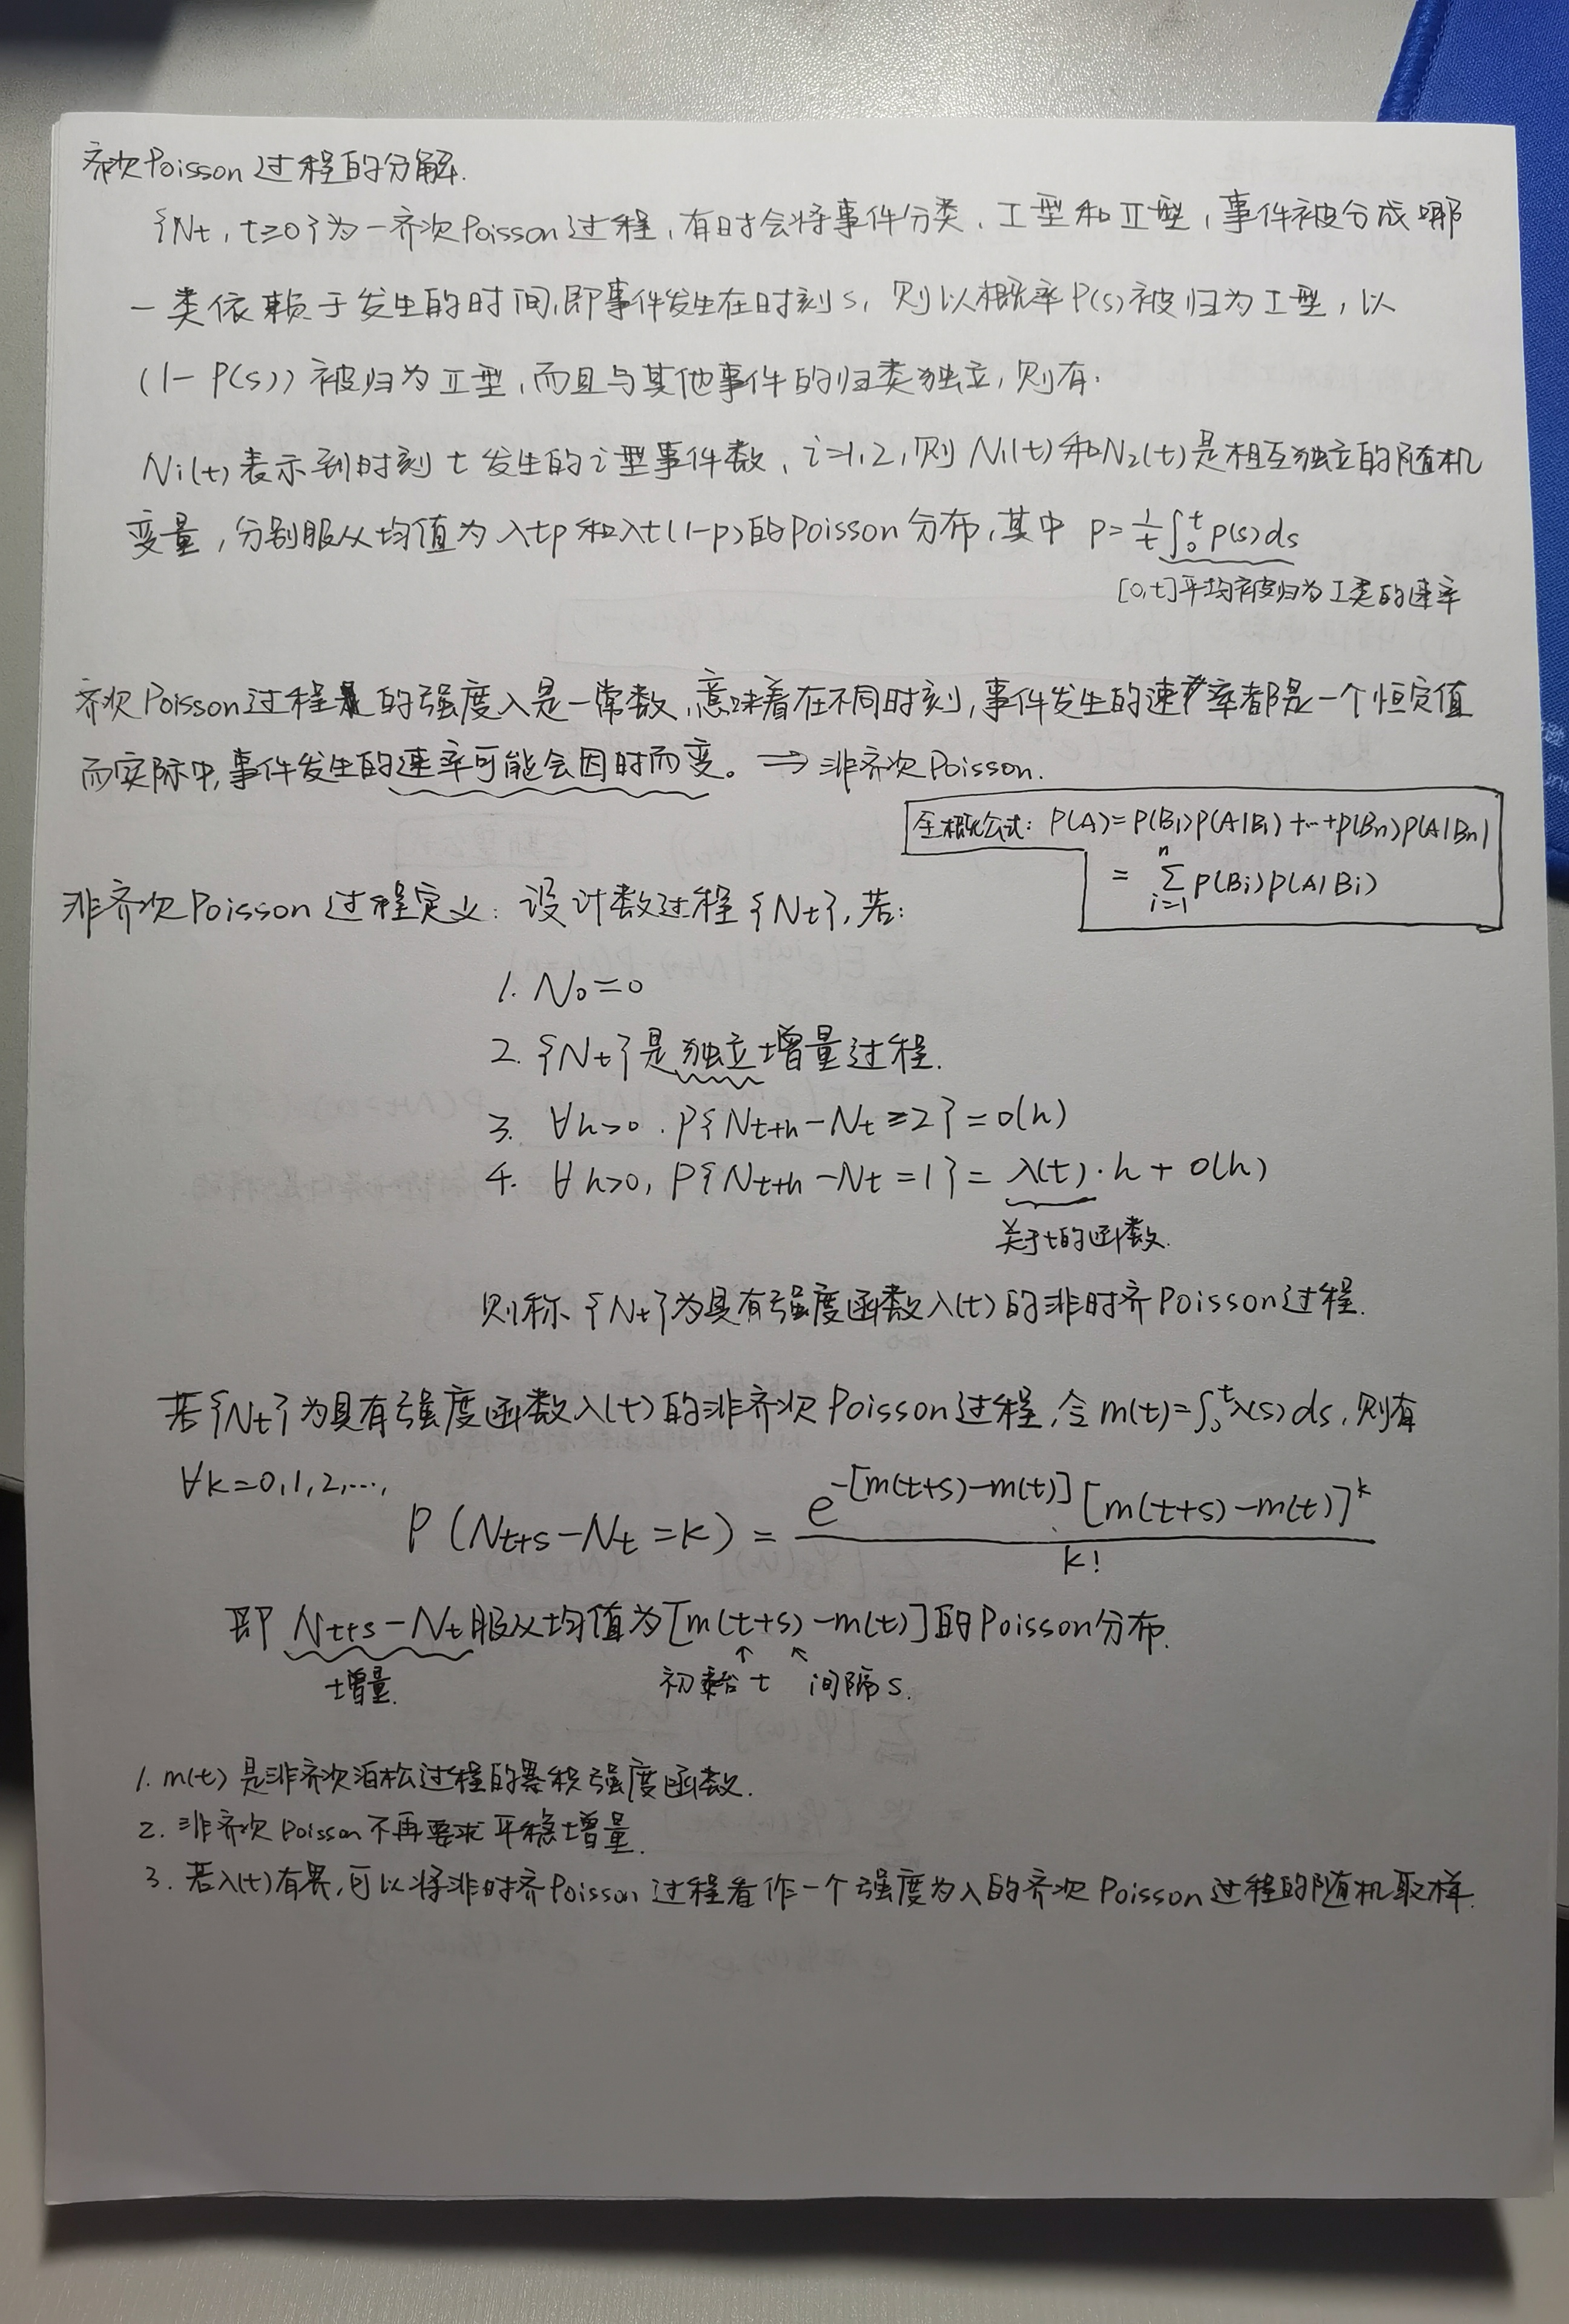 齐次Poisson过程的分解.
{Nt, t≥0}为一齐次Poisson过程,有时会将事件分类、I型和II型,事件被分成哪
一类依赖于发生的时间,即事件发生在时刻s,则以概率P(s)被归为I型,以
(1-P(s))被归为II型,而且与其他事件的归类独立,则有.
Ni(t)表示到时刻t发生的i型事件数,i=1,2,则N1(t)和N2(t)是相互独立的随机
变量,分别服从均值为λtp和λt(1-p)的Poisson分布,其中 p=1/t∫₀ᵗp(s)ds
[0,t]平均被归为I类的速率
齐次Poisson过程的强度λ是一常数,意味着在不同时刻,事件发生的速率都是一个恒定值
而实际中,事件发生的速率可能会因时而变。⇒非齐次Poisson.
全概公式: P(A)=P(B1)P(A|B1)+…+P(Bn)P(A|Bn)
= Σ_{i=1}^{n} P(Bi)P(A|Bi)
非齐次Poisson过程定义:设计数过程{Nt},若:
1. N0=0
2. {Nt}是独立增量过程.
3. ∀h>0. P{Nt+h-Nt≥2}=o(h)
4. ∀h>0, P{Nt+h-Nt=1}=λ(t)·h+o(h)
关于t的函数.
则称{Nt}为具有强度函数λ(t)的非时齐Poisson过程.
若{Nt}为具有强度函数λ(t)的非齐次Poisson过程,令m(t)=∫₀ᵗλ(s)ds,则有
∀k=0,1,2,…,
P(Nt+s-Nt=k)= e^{-[m(t+s)-m(t)]}[m(t+s)-m(t)]^k / k!
即Nt+s-Nt服从均值为[m(t+s)-m(t)]的Poisson分布.
增量. ↑初始t ↖间隔s.
1. m(t)是非齐次泊松过程的累积强度函数.
2. 非齐次Poisson不再要求平稳增量.
3. 若λ(t)有界,可以将非时齐Poisson过程看作一个强度为λ的齐次Poisson过程的随机取样.